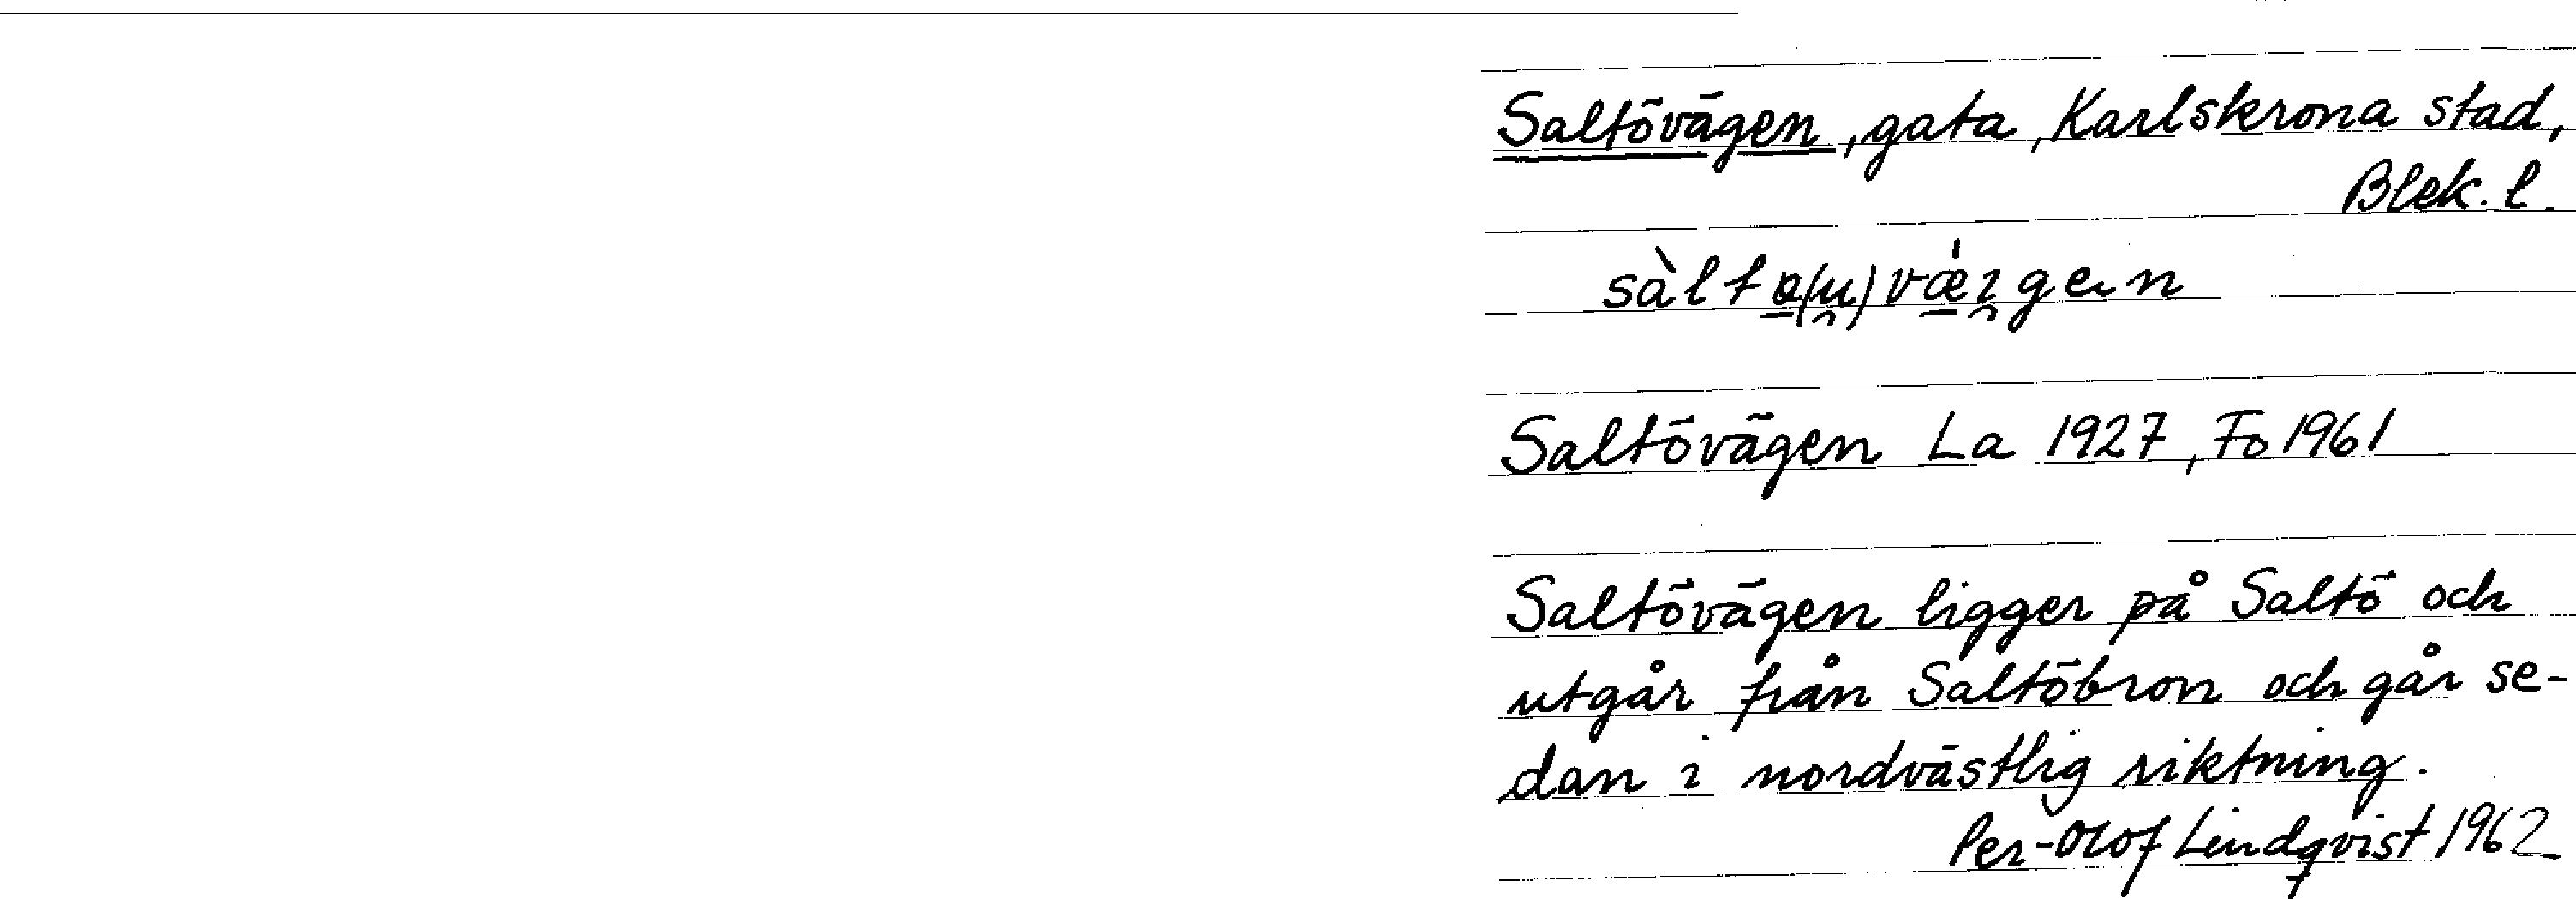 Saltövägen, gata, Karlskrona stad,
Blek. l.
Saltövägen La 1927, Fo 1961
Saltövägen ligger på Saltö och
utgår från Saltöbron och går se-
dan i nordvästlig riktning.
Per-Olof Lindqvist 1962